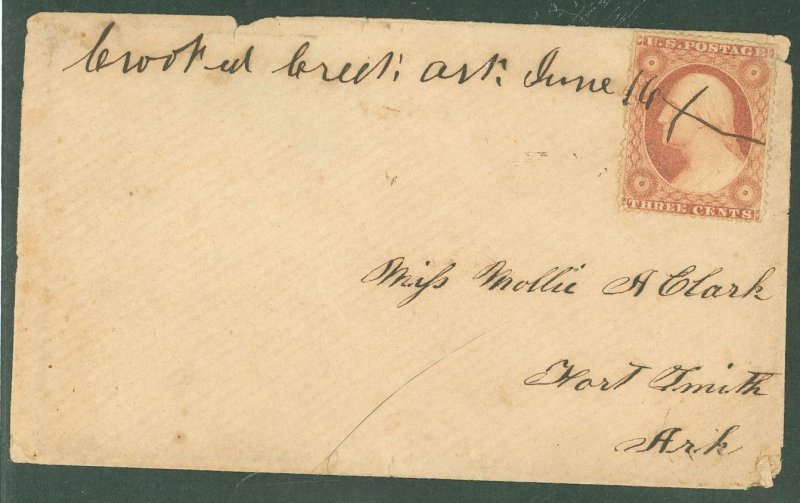 Crooked Creek Ark. June 16
U.S. POSTAGE
THREE CENTS
Miss Mollie A Clark
Fort Smith
Ark